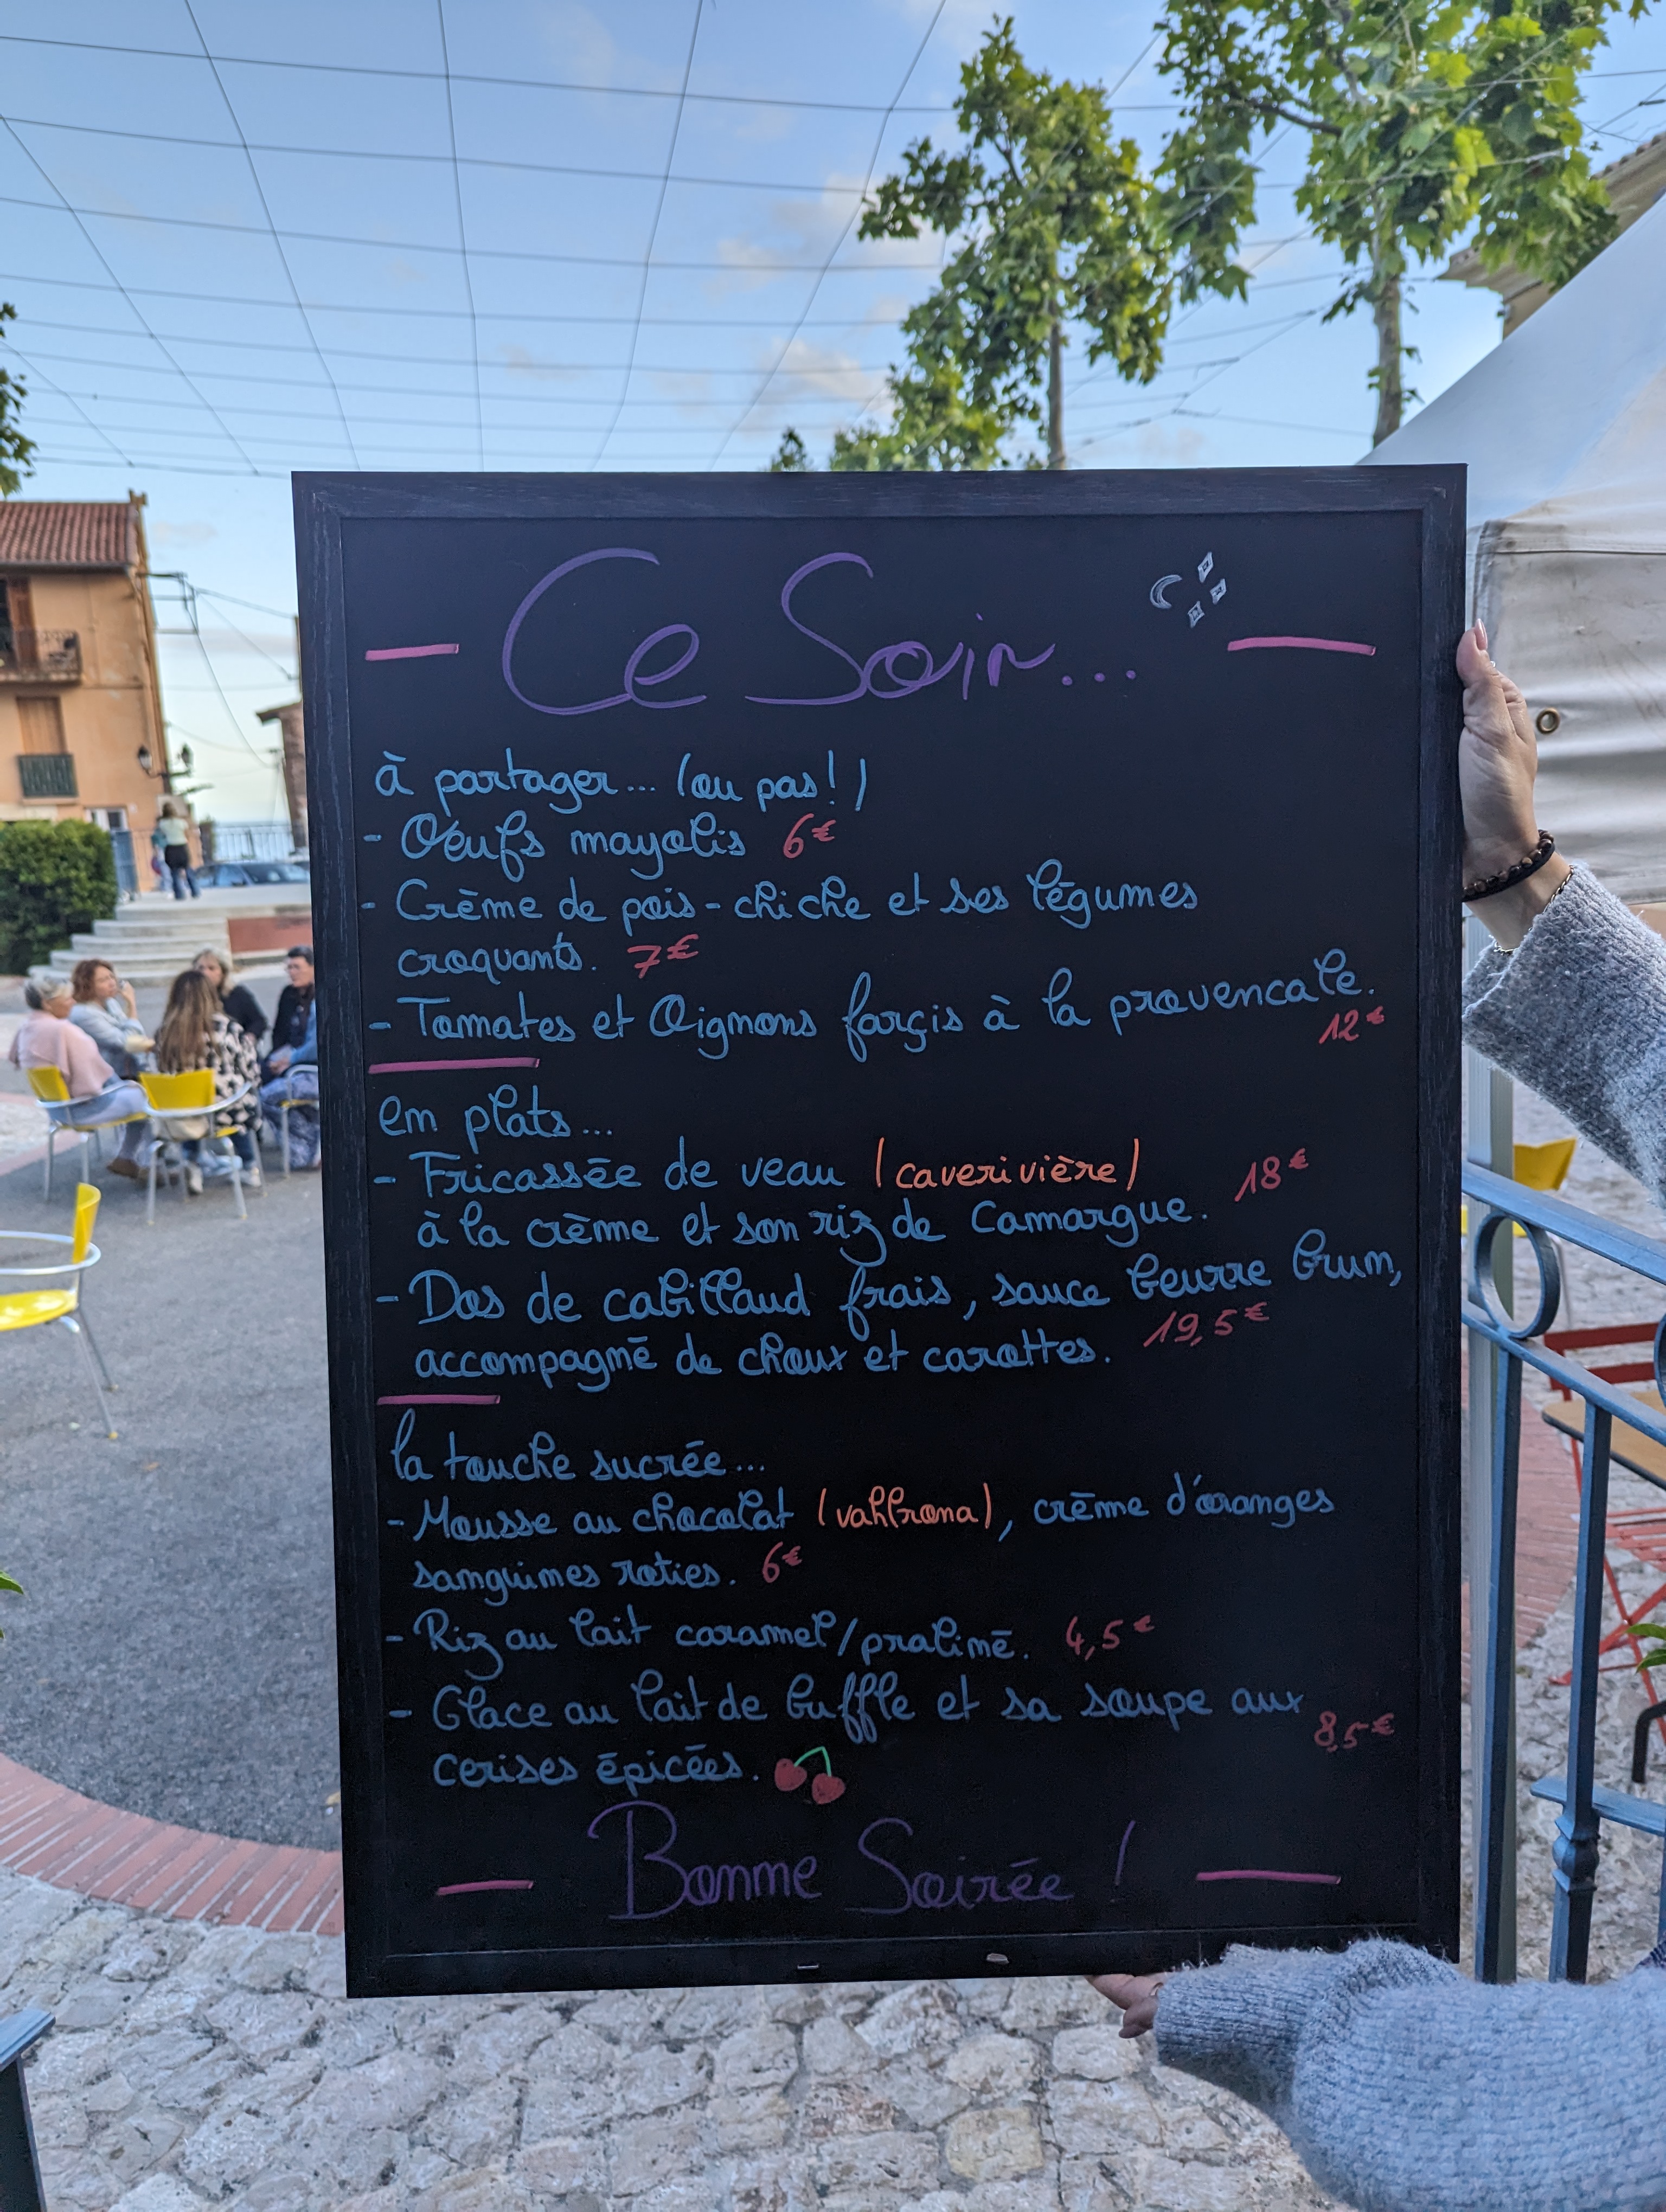 Ce Soir...
à partager... (ou pas!)
- Oeufs mayolis 6€
- Crème de pois-chiche et ses légumes
croquants. 7€
- Tomates et Oignons farçis à la provencale.
12€
en plats...
- Fricassée de veau (caverivière)
à la crème et son riz de Camargue. 18€
- Dos de cabillaud frais, sauce beurre brun,
accompagné de choux et carottes. 19,5€
la touche sucrée...
- Mousse au chocolat (vahlrona), crème d'oranges
sanguines roties. 6€
- Riz au lait caramel/praliné. 4,5€
- Glace au lait de buffle et sa soupe aux
cerises épicées. 8,5€
Bonne Soirée !